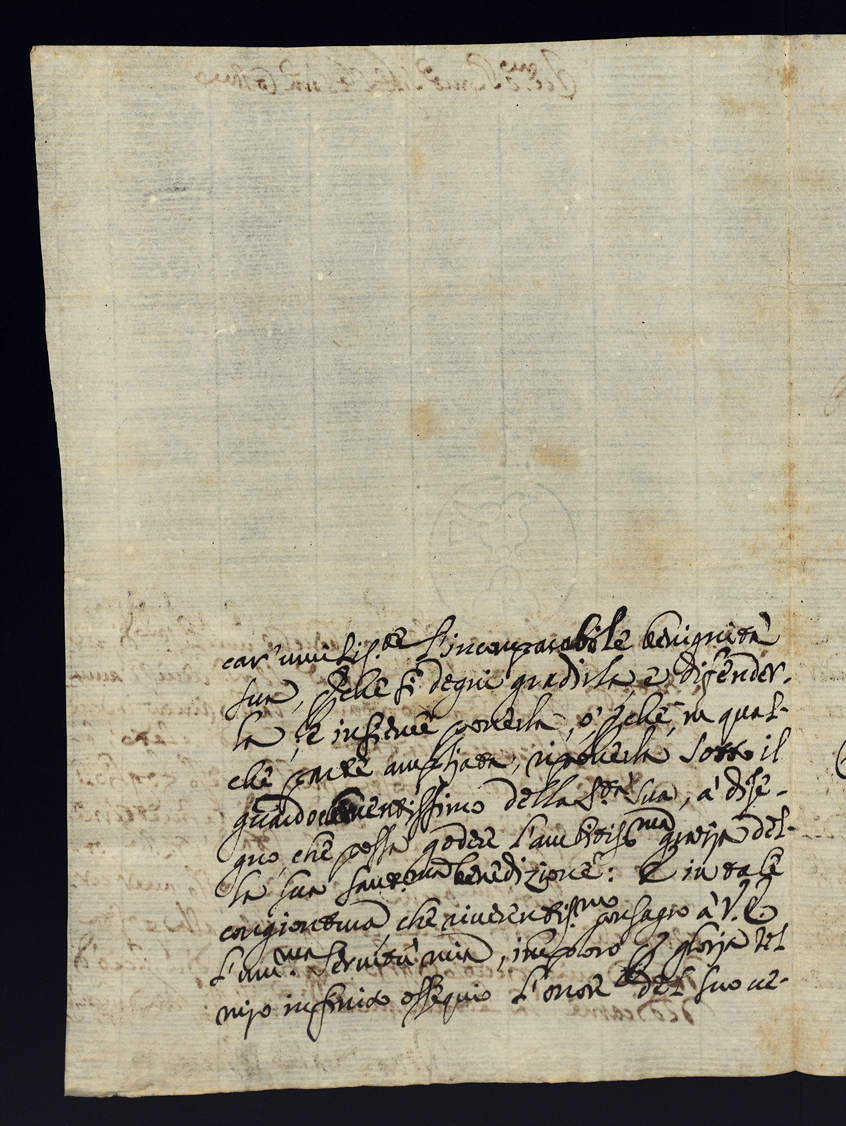 car' umilis.te l'incomparabile benignità
sua, p̱che si degni gradirla e difender-
la, e insieme poterla, o' p̱che, in qual-
che parte ampliata, riporla sotto il
guardo clementissimo della S.tà sua, à dise-
gno, che possa godere l'ambitiss.ma grazia del-
la sua sant.ma benedizione: E in tale
congiontura che riverentis.mo consagro à V. E.
l'um.ma servitù mia, imploro p̱ gloria del
mio infinito ossequio l'onore del suo ve-